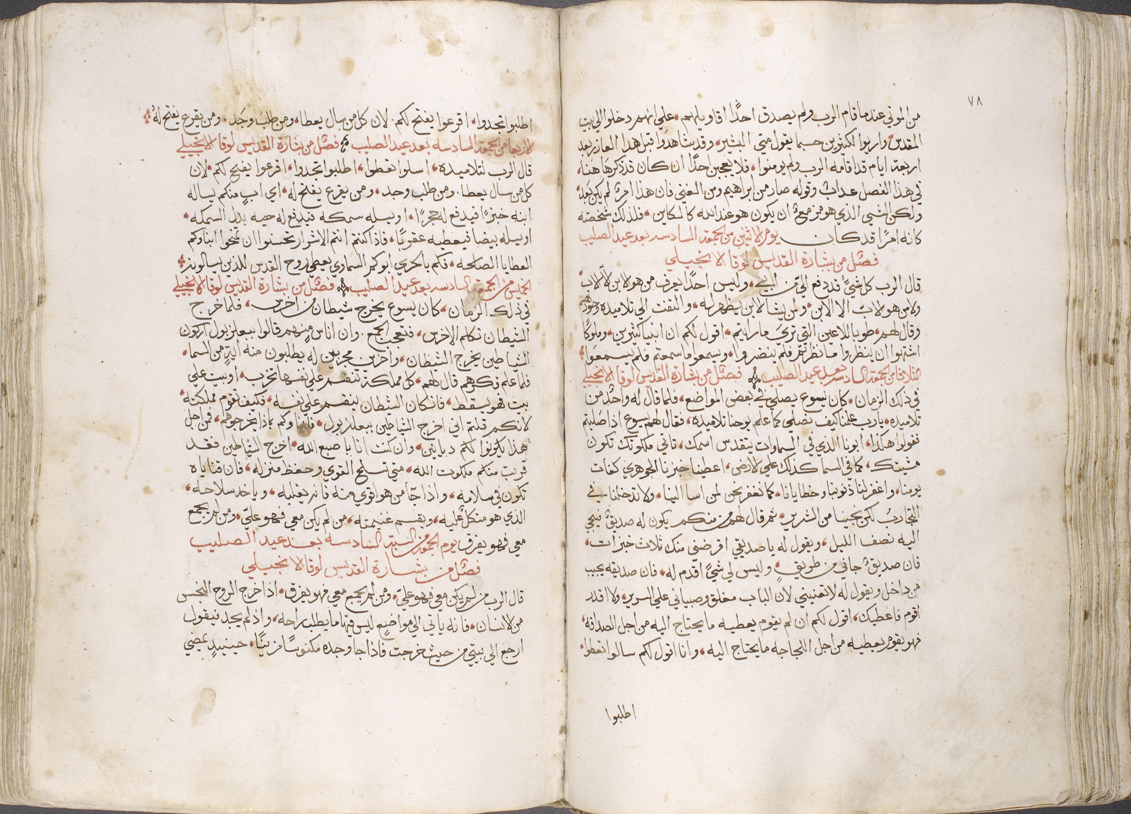 ٧٨
من الموتي عندما قام الرب ولم يصدق احدًا اقاويلهم علي انهم دخلوا الي بيت
المقدس وارايوا لكثيرين حسبما يقول متي البشير وقد شاهدوا قبل هذا العازر بعد
اربعة ايام قد اقامه الرب ولم يومنوا فلا يعجبن احدًا ان كان قد ذكرها هنا
في هذا الفصل عذاب وقوله صار من ابراهيم ومن الغني فان هذا امرٌ لم يكن بعد
ولكن الشي الذي هو مزمع ان يكون هو عند الله كالمكاين فلذلك شخصه
كانه امرًا قد كان يوم الاثنين من الجمعه السادسه بعد عيد الصليب
فصل من بشارة القديس لوقا الانجيلي
قال الرب كل شيًا قد دفع لي من ابي وليس احدًا يعرف من هو الابن الا الاب
ولا من هو الاب الا الابن ولمن يشا الابن يظهر له والتفت الي تلاميذه وحدهم
وقال لهم طوبا للاعين التي تري ما رايتم اقول لكم ان انبيا كثيرين وملوكًا
اشتهوا ان ينظروا ما نظرتم فلم ينضروا وسمعوا ما سمعتم فلم يسمعوا
الثلاثا من الجمعه السادسه بعد عيد الصليب فصل من بشارة القديس لوقا الانجيلي
في ذلك الزمان كان يسوع يصلي في بعض المواضع فلما قال له واحد من
تلاميذه يارب علمنا كيف نصلي كما علم يوحنا تلاميذه فقال لهم يسوع اذا صليتم
فقولوا هكذا ابونا الذي في السماوات يتقدس اسمك تاتي ملكوتك تكون
مشيتك كما في السما كذلك علي الارض اعطينا خبزنا الجوهري كفات
يومنا واغفر لنا ذنوبنا وخطايانا كما نغفر نحن لمن اسا الينا ولا تدخلنا في
التجارب لكن نجينا من الشرير ثم قال لهم من منكم يكون له صديق فيجي
اليه نصف الليل ويقول له يا صديقي اقرضني منك ثلاث خبزات
فان صديق جاني من طريق وليس لي شيًا اقدم له فان صديقه يجيب
من داخل ويقول له لا تعنيني لان الباب مغلق وصبياني علي السرير ولا اقدر
اقوم فاعطيك اقول لكم ان لم يقوم يعطيه ما يحتاج اليه من اجل الصداقه
فهو يقوم يعطيه من اجل اللجاجه ما يحتاج اليه وانا اقول لكم سالوا تعطوا
اطلبوا
اطلبوا تجدوا اقرعوا يفتح لكم لان كل من سال يعطا ومن طلب وجد ومن يقرع يفتح له
الاربعا من الجمعه السادسه بعد عيد الصليب فصل من بشارة القديس لوقا الانجيلي
قال الرب لتلاميذه اسلوا تعطوا اطلبوا تجدوا اقرعوا يفتح لكم لان
كل من سال يعطا ومن طلب وجد ومن يقرع يفتح له اي اب منكم يساله
ابنه خبزًا فيدفع له حجرًا او يسله سمكه فيدفع له حيه بدل السمكه
او يسله بيضا فيعطيه عقربًا فاذا كنتم انتم الاشرار تحسنوا ان تمنحوا ابناوكم
العطايا الصالحه فكم بالحري ابوكم السماوي يعطي روح القدس للذين يسالونه
الخميس من الجمعه السادسه بعد عيد الصليب فصل من بشارة القديس لوقا الانجيلي
في ذلك الزمان كان يسوع يخرج شيطان من اخرس فلما خرج
الشيطان تكلم الاخرس فتعجب الجمع وان اناس منهم قالوا ببعلزبول اركون
الشياطين يخرج الشيطان واخرين مجربين له يطلبون منه ايه من السما
فلما علم فكرهم قال لهم كل مملكه تنقسم علي نفسها تخرب او بيت علي
بيت فهو يسقط فان كان الشيطان ينقسم علي نفسه فكيف تقوم مملكته
لانكم قلتم اني اخرج الشياطين ببعلزبول فابناوكم بماذا يخرجوهم من اجل
هذا يكونوا لكم ديانين وان كنت انا باصبع الله اخرج الشياطين فقد
قربت منكم ملكوت الله متي تسلح القوي وحفظ منزله فان قناياه
تكون في سلامه واذا جا من هو اقوي منه فانه يغلبه وياخد سلاحه
الذي هو متكل عليه ويقسم غنيمته من لم يكن معي فهو علي ومن لم يجمع
معي فهو يفرق يوم الجمعه من السبة السادسه بعد عيد الصليب
فصل من بشارة القديس لوقا الانجيلي
قال الرب من لم يكن معي فهو علي ومن لم يجمع معي فهو يفرق اذا خرج الروح النجس
من الانسان فانه ياتي الي مواضع ليس فيها ما يطلب راحه واذ لم يجد فيقول
ارجع الي بيتي من حيث خرجت فاذا جا وجده مكنوسًا مزينًا حينيذٍ يمضي